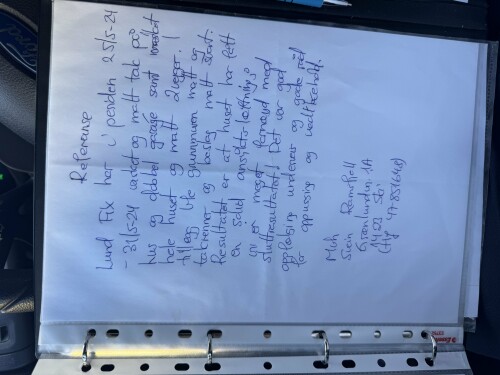 Referanse
Lund Fix har i perioden 25/5-24
- 31/5-24 vasket og malt tak på
hus og dobbel garasje samt
hele huset og malt 2 vegger. I
tillegg ble grunnmuren malt og
takrenner og beslag malt svart.
Resultatet er at huset har fått
en solid ansiktsløftning, og
vi er meget fornøyd med
sluttresultatet! Det var god
oppfølging underveis og gode råd
for oppussing og vedlikehold.
Mvh
Svein
1A
1423 Ski